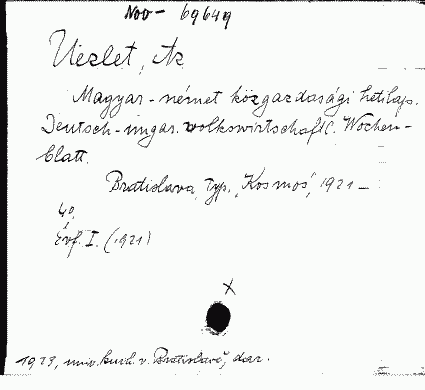 Nov - 69649
Üzlet, Az
Magyar-német közgazdasági hetilap.
Deutsch-ungar. volkswirtschaftl. Wochen-
blatt.
Bratislava, Typ. "Kosmos", 1921 -
4°.
Évf. I. (1921)
x
1923, univ. knih. v Bratislavě, dar.